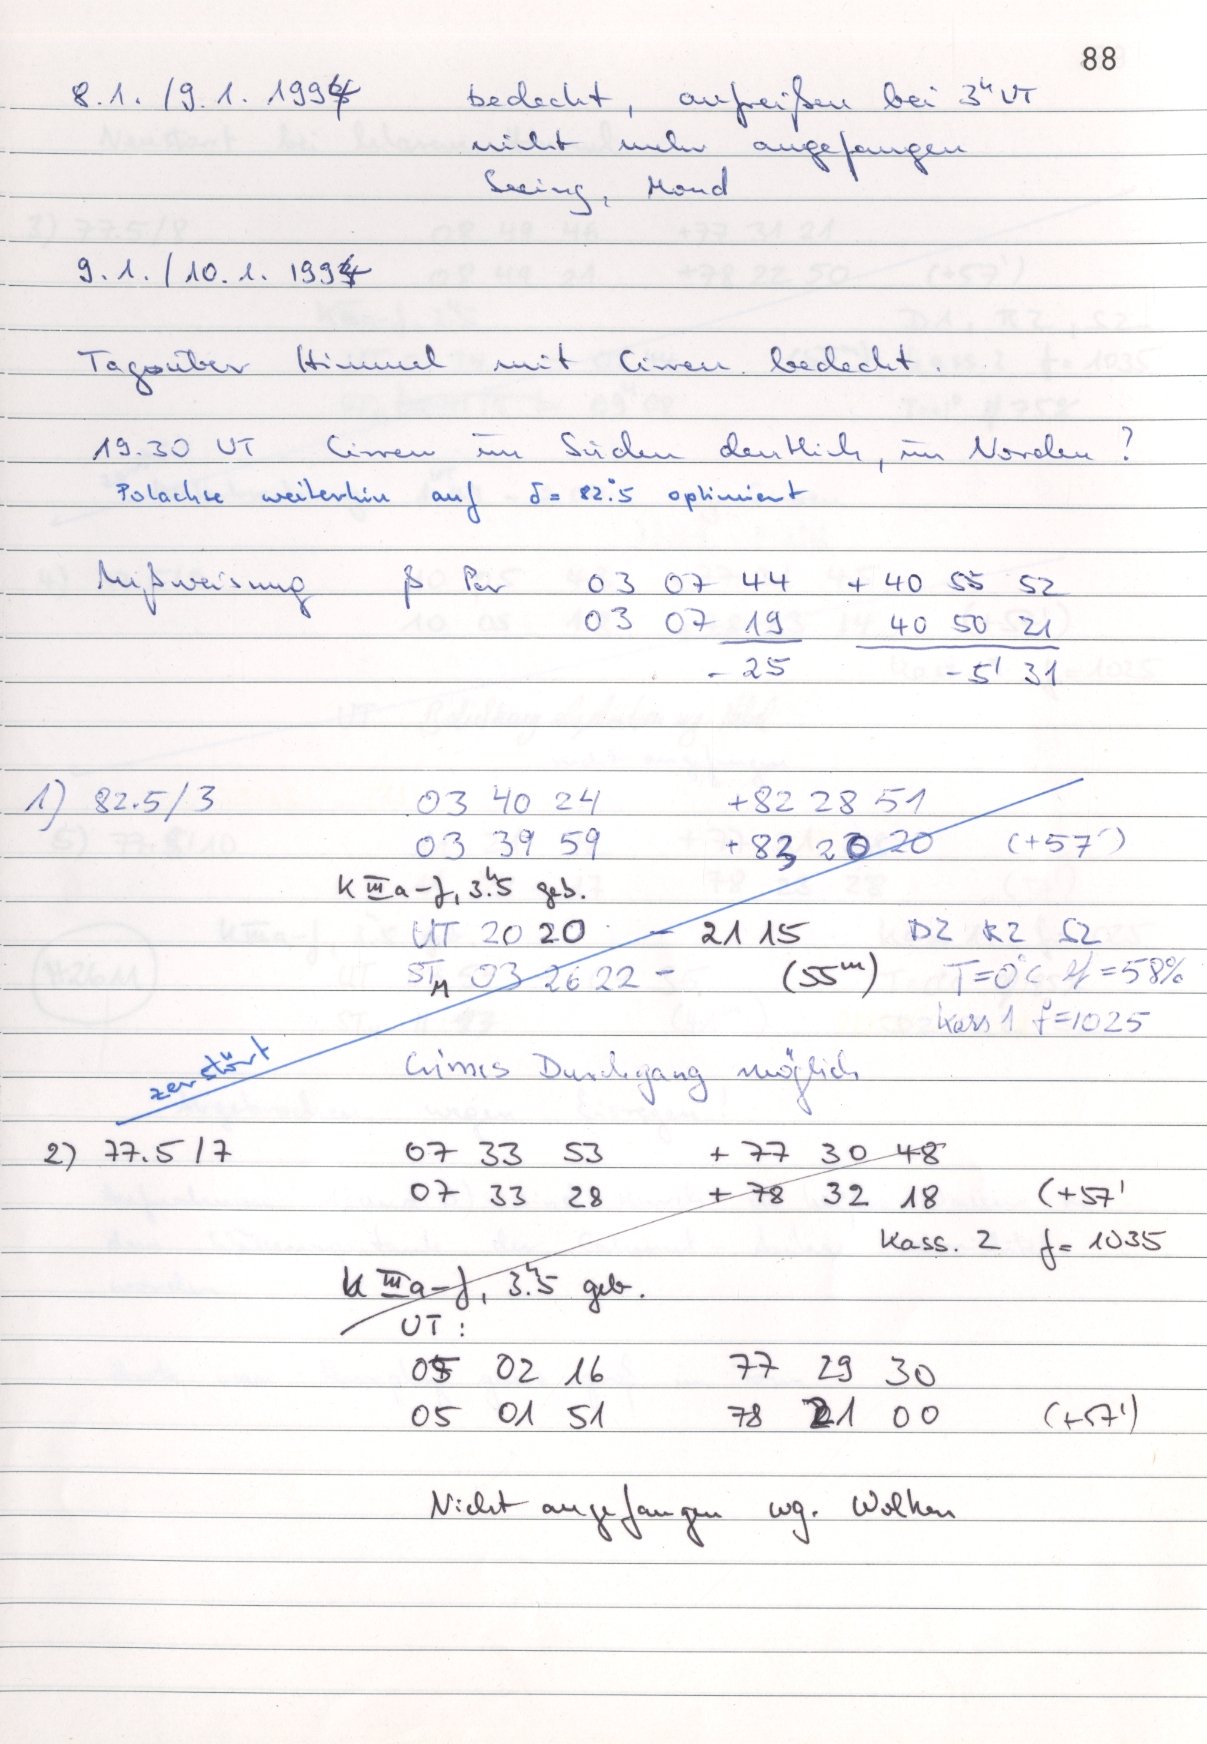 88
8.1./9.1. 1994 bedeckt, aufreißen bei 3ʰ UT
nicht mehr angefangen
Seeing, Mond
9.1./10.1. 1994
Tagsüber Himmel mit Cirren bedeckt.
19.30 UT Cirren im Süden deutlich, im Norden?
Polachse weiterhin auf δ = 82°.5 optimiert
Mißweisung β Per 03 07 44 + 40 55 52
03 07 19 40 50 21
- 25 - 5' 31
1) 82.5/3 03 40 24 +82 28 51
03 39 59 +83 20 20 (+57')
K IIIa-J, 3.ʰ5 geb.
UT 20 20 - 21 15 D2 K2 S2
ST 03 26 22 - (55ᵐ) T=0°C φ=58%
Kass 1 f=1025
zerstört
Cirrus Durchgang möglich
2) 77.5/7 07 33 53 + 77 30 48
07 33 28 + 78 32 18 (+57'
Kass. 2 f= 1035
K IIIa-J, 3.ʰ5 geb.
UT:
05 02 16 77 29 30
05 01 51 78 21 00 (+57')
Nicht angefangen wg. Wolken